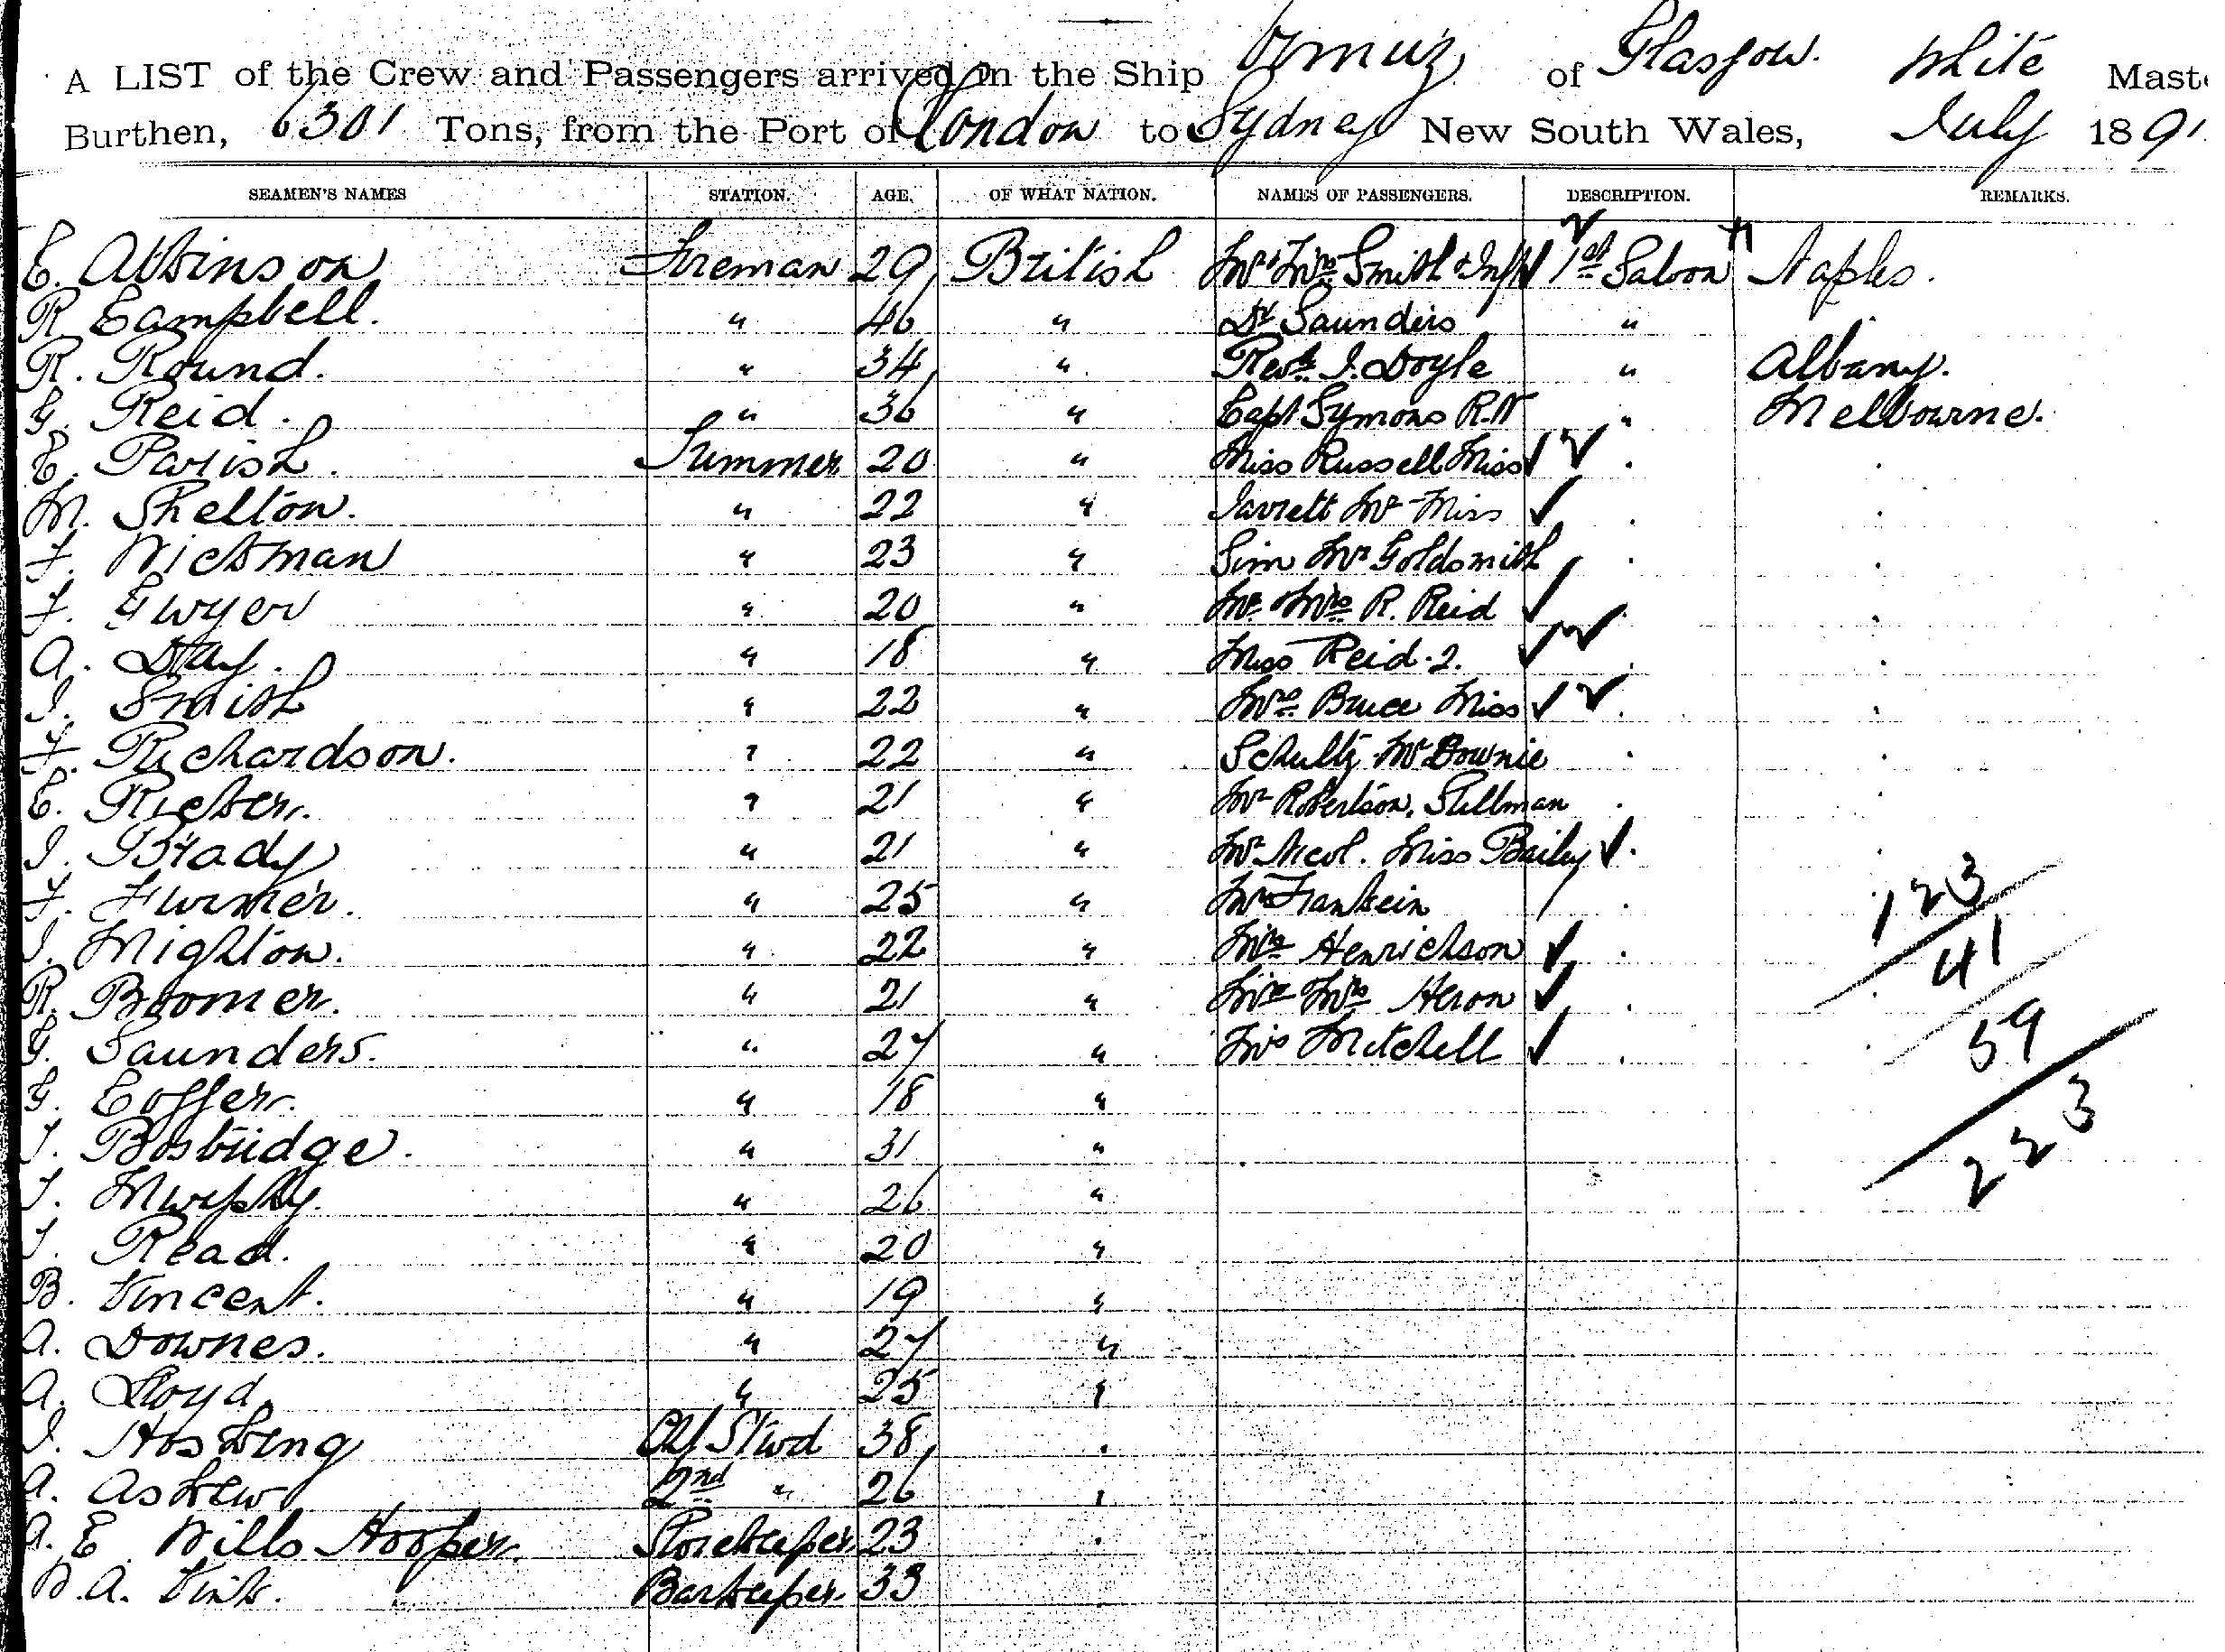 A LIST of the Crew and Passengers arrived in the Ship Ormuz of Glasgow. White Maste
Burthen, 6301 Tons, from the Port of London to Sydney New South Wales, July 1891
SEAMEN'S NAMES STATION. AGE. OF WHAT NATION. NAMES OF PASSENGERS. DESCRIPTION. REMARKS.
E. Atkinson Fireman 29 British Mr & Mrs Smith & Inft 1st Saloon Naples.
R Campbell. " 46 " Dr Saunders "
R. Round. " 34 " Revd. J. Doyle " Albany.
G. Reid. " 36 " Capt Symons R.N " Melbourne.
E. Parish. Trimmer 20 " Miss Russell Miss
M. Shelton. " 22 " Jarrett Mr Miss
F. Wickman " 23 " Sim Mr Goldsmith
F. Gwyer " 20 " Mr Mrs R. Reid
A. Day. " 18 " Miss Reid. 2.
J. Smith " 22 " Mrs Bruce Miss
F. Richardson. " 22 " Schultz Mr Downie
E. Ricker. " 21 " Mr Robertson. Stillman
J. Brady " 21 " Mr Nicol. Miss Bailey
F. Furmer. " 25 " Mr Frankein 123
J. Mighton. " 22 " Mrs Henrichson 41
R. Boomer. " 21 " Mrs Heron
G. Saunders. " 27 " Mrs Mitchell 59
G. Coffer. " 18 "
T. Bosbridge. " 31 " 223
T. Murphy. " 26 "
T. Read. " 20 "
B. Vincent. " 19 "
A. Downes. " 27 "
A. Lloyd. " 25 "
J. Hosking Chf Stwd 38
A. Askew 2nd " 26
A. E. Wills Hooper. Storekeeper. 23
A. Vink. Barkeeper. 33